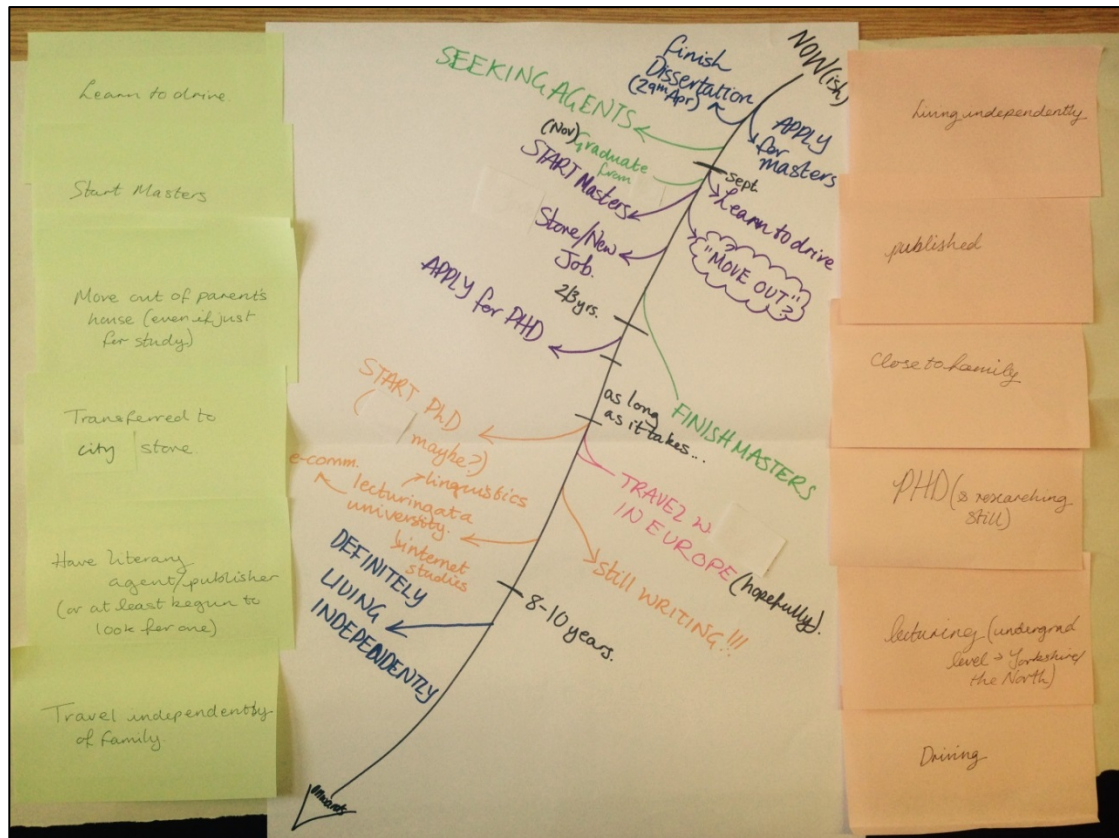 Learn to drive.
Start Masters
Move out of parent's
house (even if just
for study)
Transferred to
city store
Have literary
agent/publisher
(or at least begun to
look for one)
Travel independently
of family.
NOW(ish)
finish
Dissertation
(29th Apr)
APPLY
for masters
SEEKING AGENTS
(Nov) graduate
from
sept
START Masters
Learn to drive
"MOVE OUT"?
Store/New
Job.
2/3 yrs.
APPLY for PHD
FINISH MASTERS
as long
as it takes...
START PhD
(maybe?)
TRAVEL
IN EUROPE
(hopefully).
e-comm.
linguistics
lecturing at a
university.
internet
studies
Still WRITING!!!
8-10 years.
DEFINITELY
LIVING
INDEPENDENTLY
onwards
Living independently
published
Close to family
PHD (& researching
still)
lecturing (undergrad
level → Yorkshire/
the North)
Driving